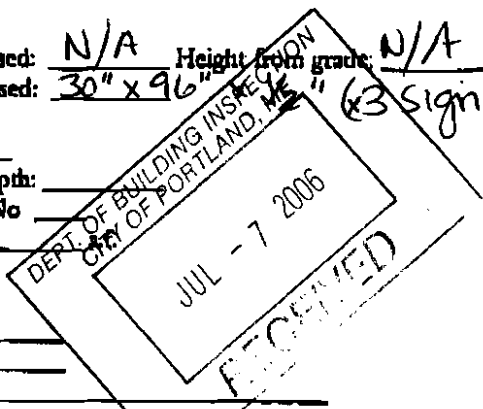 sed: N/A Height from grade: N/A
sed: 30" x 96" " (x3 Sign
pth:
No
DEPT. OF BUILDING INSPECTION
CITY OF PORTLAND, ME
JUL - 7 2006
RECEIVED